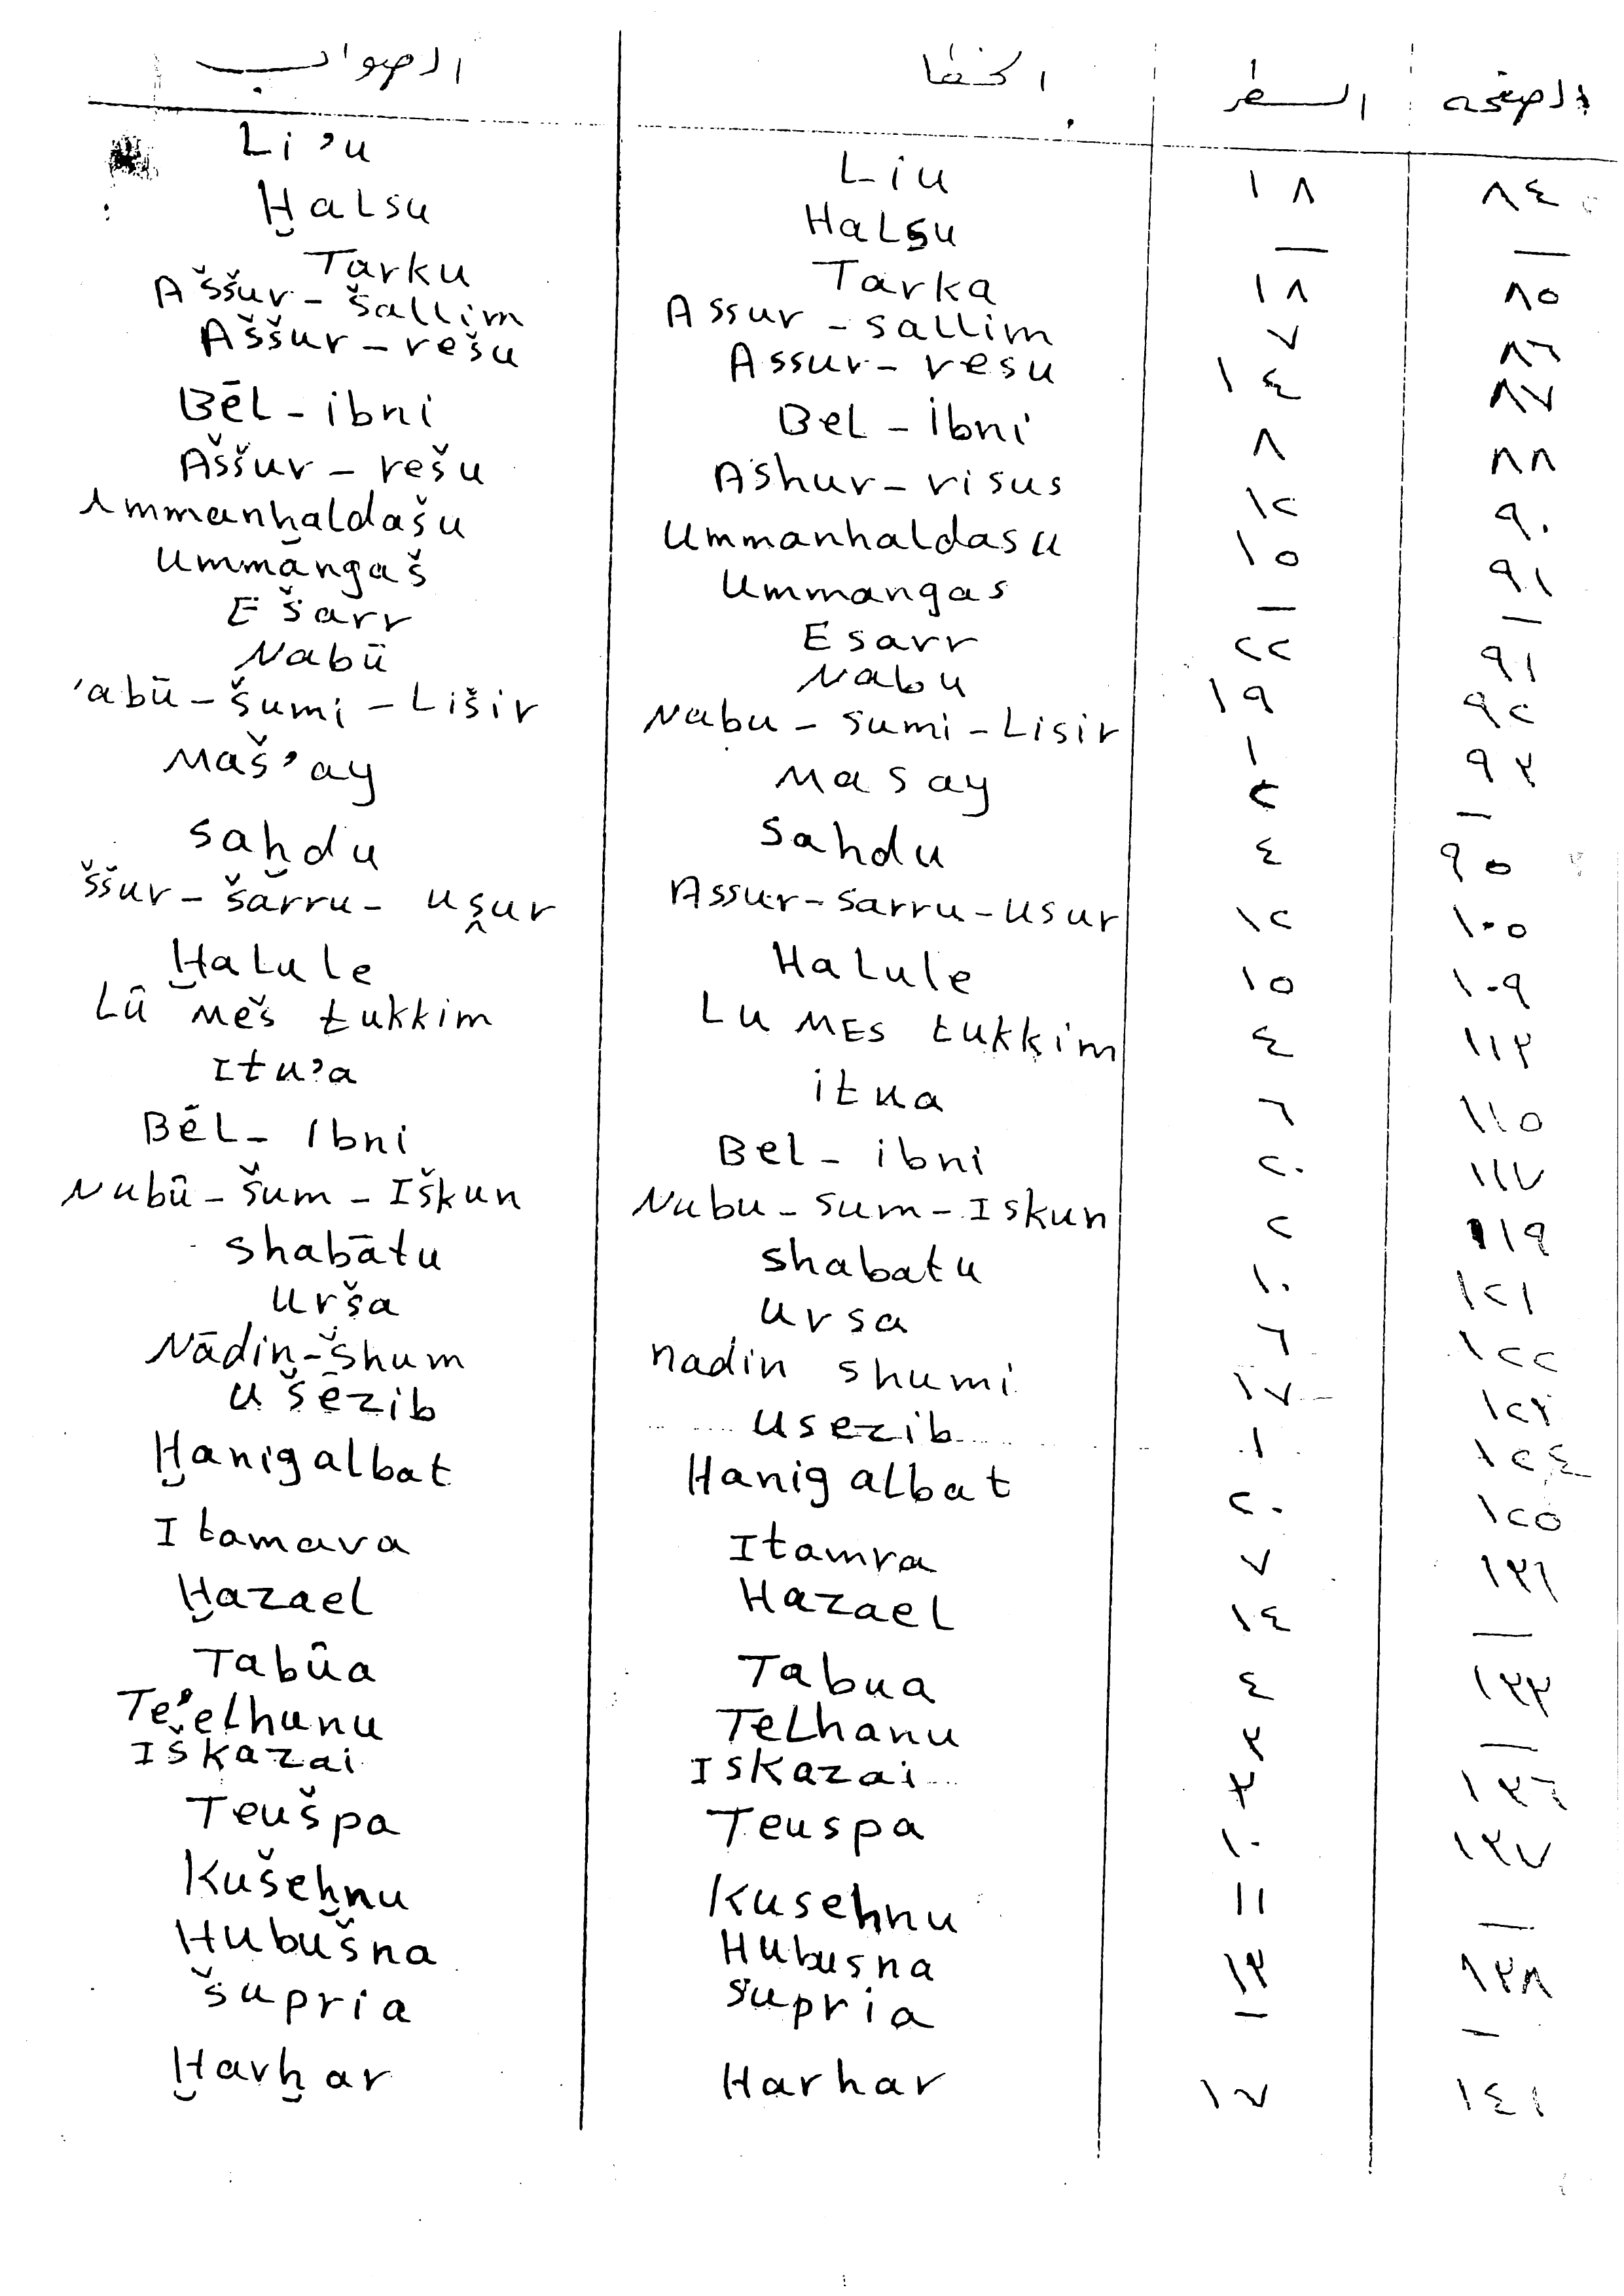 الصفحه السطر الخطا الصواب
٨٤ ١٨ Liu Li'u
— — Halsu Ḫalsu
٨٥ ١٨ Tarka Tarku
٨٦ ٧ Assur - sallim Aššur - šallim
٨٧ ١٤ Assur - resu Aššur - rešu
٨٨ ٨ Bel - Ibni Bēl - ibni
٩٠ ١٢ Ashur - risus Aššur - rešu
٩١ ١٥ Ummanhaldasu mmanḫaldašu
— — Ummangas Ummangaš
٩١ ٢٢ Esarr E šarr
٩٢ ١٩ Nabu Nabū
٩٣ ١ Nabu - sumi - Lisir abū - šumi - Lišir
— ٢ Masay Maš'ay
٩٥ ٤ Sahdu Saḫdu
١٠٥ ١٢ Assur - sarru - usur ššur - šarru - uṣur
١٠٩ ١٥ Halule Ḫalule
١١٣ ٤ LU MES tukkim Lû meš tukkim
١١٥ ٦ itua Itu'a
١١٧ ٢٠ Bel - ibni Bēl - Ibni
١١٩ ٢ Nubu - sum - Iskun Nubû - šum - Iškun
١٢١ ١٠ shabatu shabātu
١٢٢ ٦ ursa urša
١٢٣ ١٧ nadin shumi Nādin - šhum
١٢٤ ١ usezib u šēzib
١٢٥ ٢٠ Hanigalbat Ḫanigalbat
١٣١ ٧ Itamra Itamara
— ١٤ Hazael Ḫazael
١٣٣ ٤ Tabua Tabûa
— ٣ Telhanu Te'elhunu
١٣٦ ٣ Iskazai Iškazai
١٣٧ ١٠ Teuspa Teušpa
— ١١ Kusehnu Kušeḫnu
١٣٨ ١٣ Hubusna Hubušna
— — supria šupria
١٤١ ١٧ Harhar Ḫarḫar